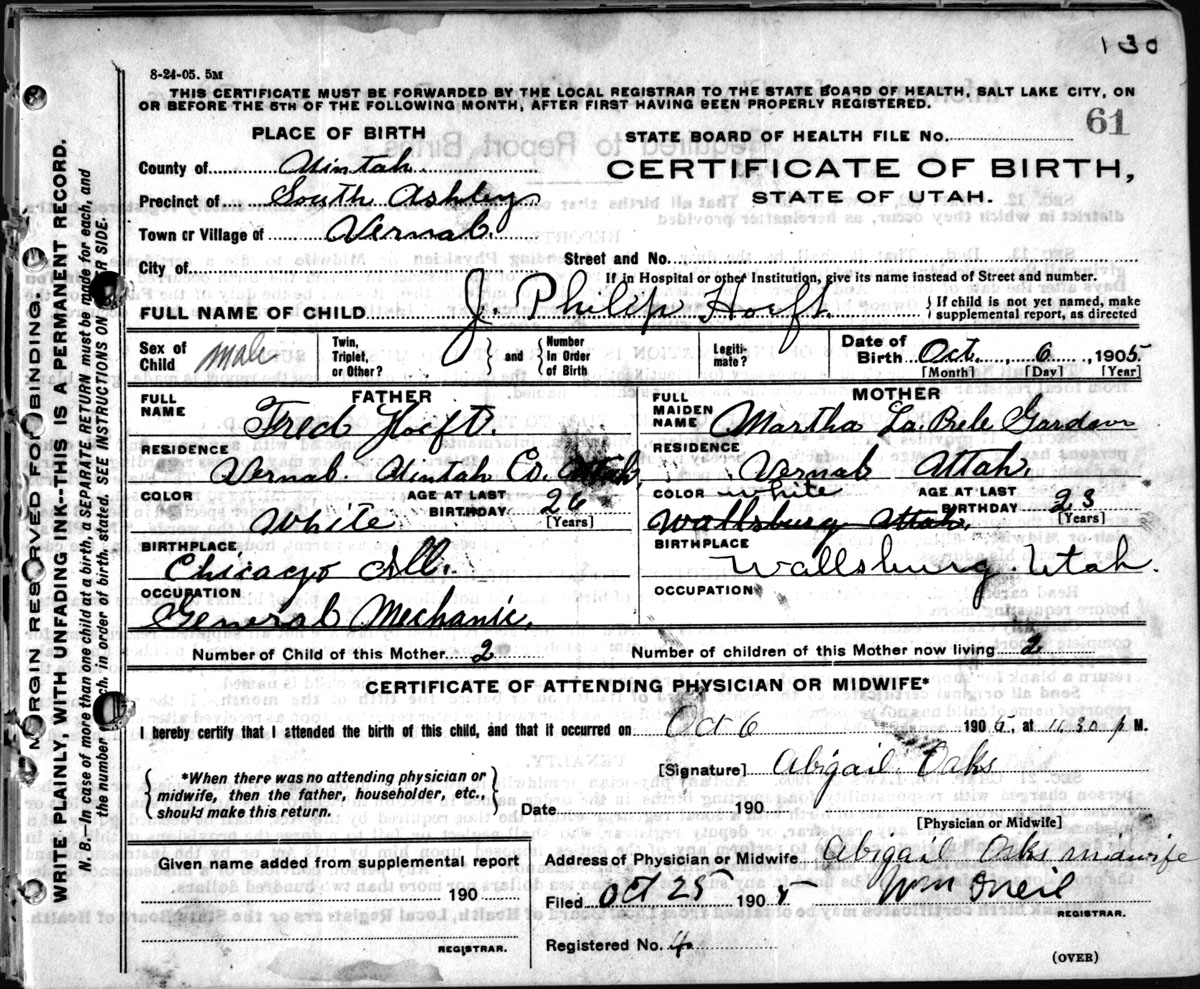 130
8-24-05. 5M
THIS CERTIFICATE MUST BE FORWARDED BY THE LOCAL REGISTRAR TO THE STATE BOARD OF HEALTH, SALT LAKE CITY, ON
OR BEFORE THE 5TH OF THE FOLLOWING MONTH, AFTER FIRST HAVING BEEN PROPERLY REGISTERED.
PLACE OF BIRTH
STATE BOARD OF HEALTH FILE NO. 61
County of Uintah
CERTIFICATE OF BIRTH,
Precinct of South Ashley
STATE OF UTAH.
Town or Village of Vernal
City of
Street and No.
If in Hospital or other Institution, give its name instead of Street and number.
FULL NAME OF CHILD J. Philip Hoeft { If child is not yet named, make supplemental report, as directed
Sex of Child male
Twin, Triplet, or Other? } and { Number In Order of Birth
Legitimate?
Date of Birth Oct. 6, 1905
[Month] [Day] [Year]
FATHER
FULL NAME Fred Hoeft.
RESIDENCE Vernal. Uintah Co. Utah
COLOR White
AGE AT LAST BIRTHDAY 26 [Years]
BIRTHPLACE Chicago Ill.
OCCUPATION General Mechanic.
MOTHER
FULL MAIDEN NAME Martha La Prele
RESIDENCE Vernal Utah.
COLOR white
Wallsburg Utah.
AGE AT LAST BIRTHDAY 23 [Years]
BIRTHPLACE Wallsburg. Utah.
OCCUPATION
Number of Child of this Mother 2
Number of children of this Mother now living 2
CERTIFICATE OF ATTENDING PHYSICIAN OR MIDWIFE*
I hereby certify that I attended the birth of this child, and that it occurred on Oct 6 1905, at 11.30 p M.
{ *When there was no attending physician or midwife, then the father, householder, etc., should make this return. }
[Signature] Abigail Oaks
Date 190
[Physician or Midwife]
Given name added from supplemental report
190
REGISTRAR.
Address of Physician or Midwife Abigail Oaks midwife
Filed Oct. 25 1905 Wm Oneil
REGISTRAR.
Registered No. 40
(OVER)
MARGIN RESERVED FOR BINDING.
WRITE PLAINLY, WITH UNFADING INK--THIS IS A PERMANENT RECORD.
N. B.—In case of more than one child at a birth, a SEPARATE RETURN must be made for each, and
the number each, in order of birth, stated. SEE INSTRUCTIONS ON OTHER SIDE.